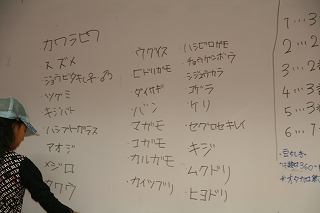 カワラヒワ
スズメ
ジョウビタキ
ツグミ
キジバト
ハシブトガラス
アオジ
メジロ
カワウ
ウグイス
ヒドリガモ
ダイサギ
バン
マガモ
コガモ
カルガモ
カイツブリ
ハシビロガモ
チョウゲンボウ
シジュウカラ
コゲラ
ケリ
セグロセキレイ
キジ
ムクドリ
ヒヨドリ
1…3
2…2
3…3
4…3
5…3
6…